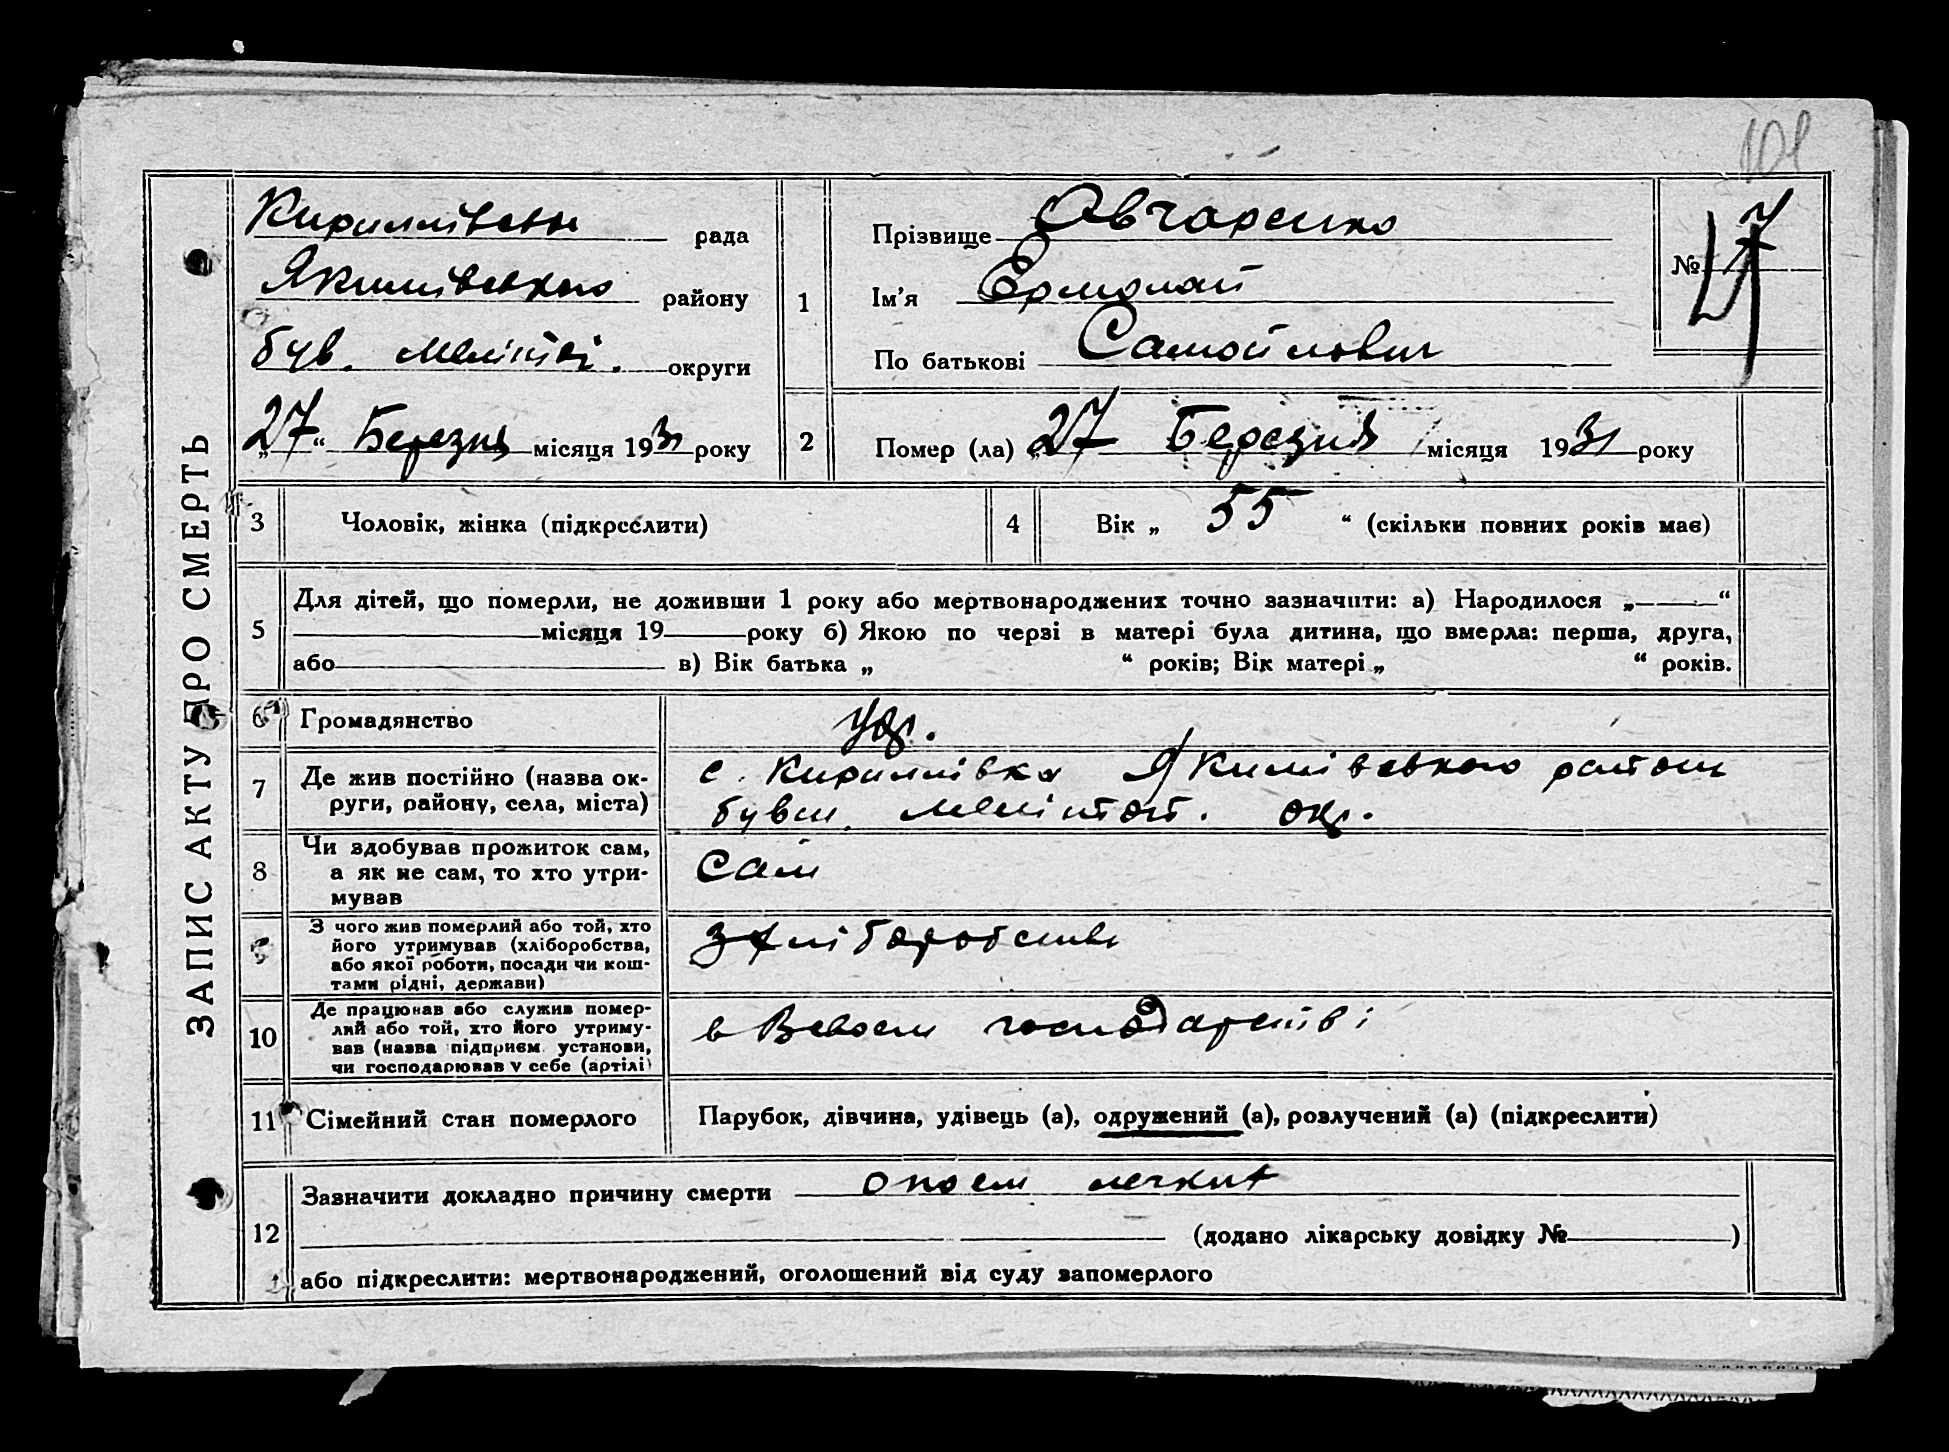 101
ЗАПИС АКТУ ПРО СМЕРТЬ
Кириллівська рада
Якимівського району
був. Меліт. округи
„27“ Березня місяця 1931 року
1
Прізвище Овчаренко
Ім'я Єрмолай
По батькові Самойлович
№ 17
2
Помер (ла) „27 Березня місяця 1931 року
3 Чоловік, жінка (підкреслити)
4 Вік „ 55 “ (скільки повних років має)
5
Для дітей, що померли, не доживши 1 року або мертвонароджених точно зазначити: а) Народилося „———“
місяця 19 року б) Якою по черзі в матері була дитина, що вмерла: перша, друга,
або в) Вік батька „ “ років; Вік матері „ “ років.
6 Громадянство Укр.
7 Де жив постійно (назва ок-
руги, району, села, міста)
с. Кириллівка Якимівського району
бувш. Меліт. окр.
8 Чи здобував прожиток сам,
а як не сам, то хто утри-
мував
Сам
9 З чого жив померлий або той, хто
його утримував (хліборобства,
або якої роботи, посади чи кош-
тами рідні, держави)
З хліборобства
10 Де працював або служив помер-
лий або той, хто його утриму-
вав (назва підприєм. установи,
чи господарював у себе (артілі)
в господарстві
11 Сімейний стан померлого Парубок, дівчина, удівець (а), одружений (а), розлучений (а) (підкреслити)
12 Зазначити докладно причину смерти
(додано лікарську довідку № )
або підкреслити: мертвонароджений, оголошений від суду запомерлого